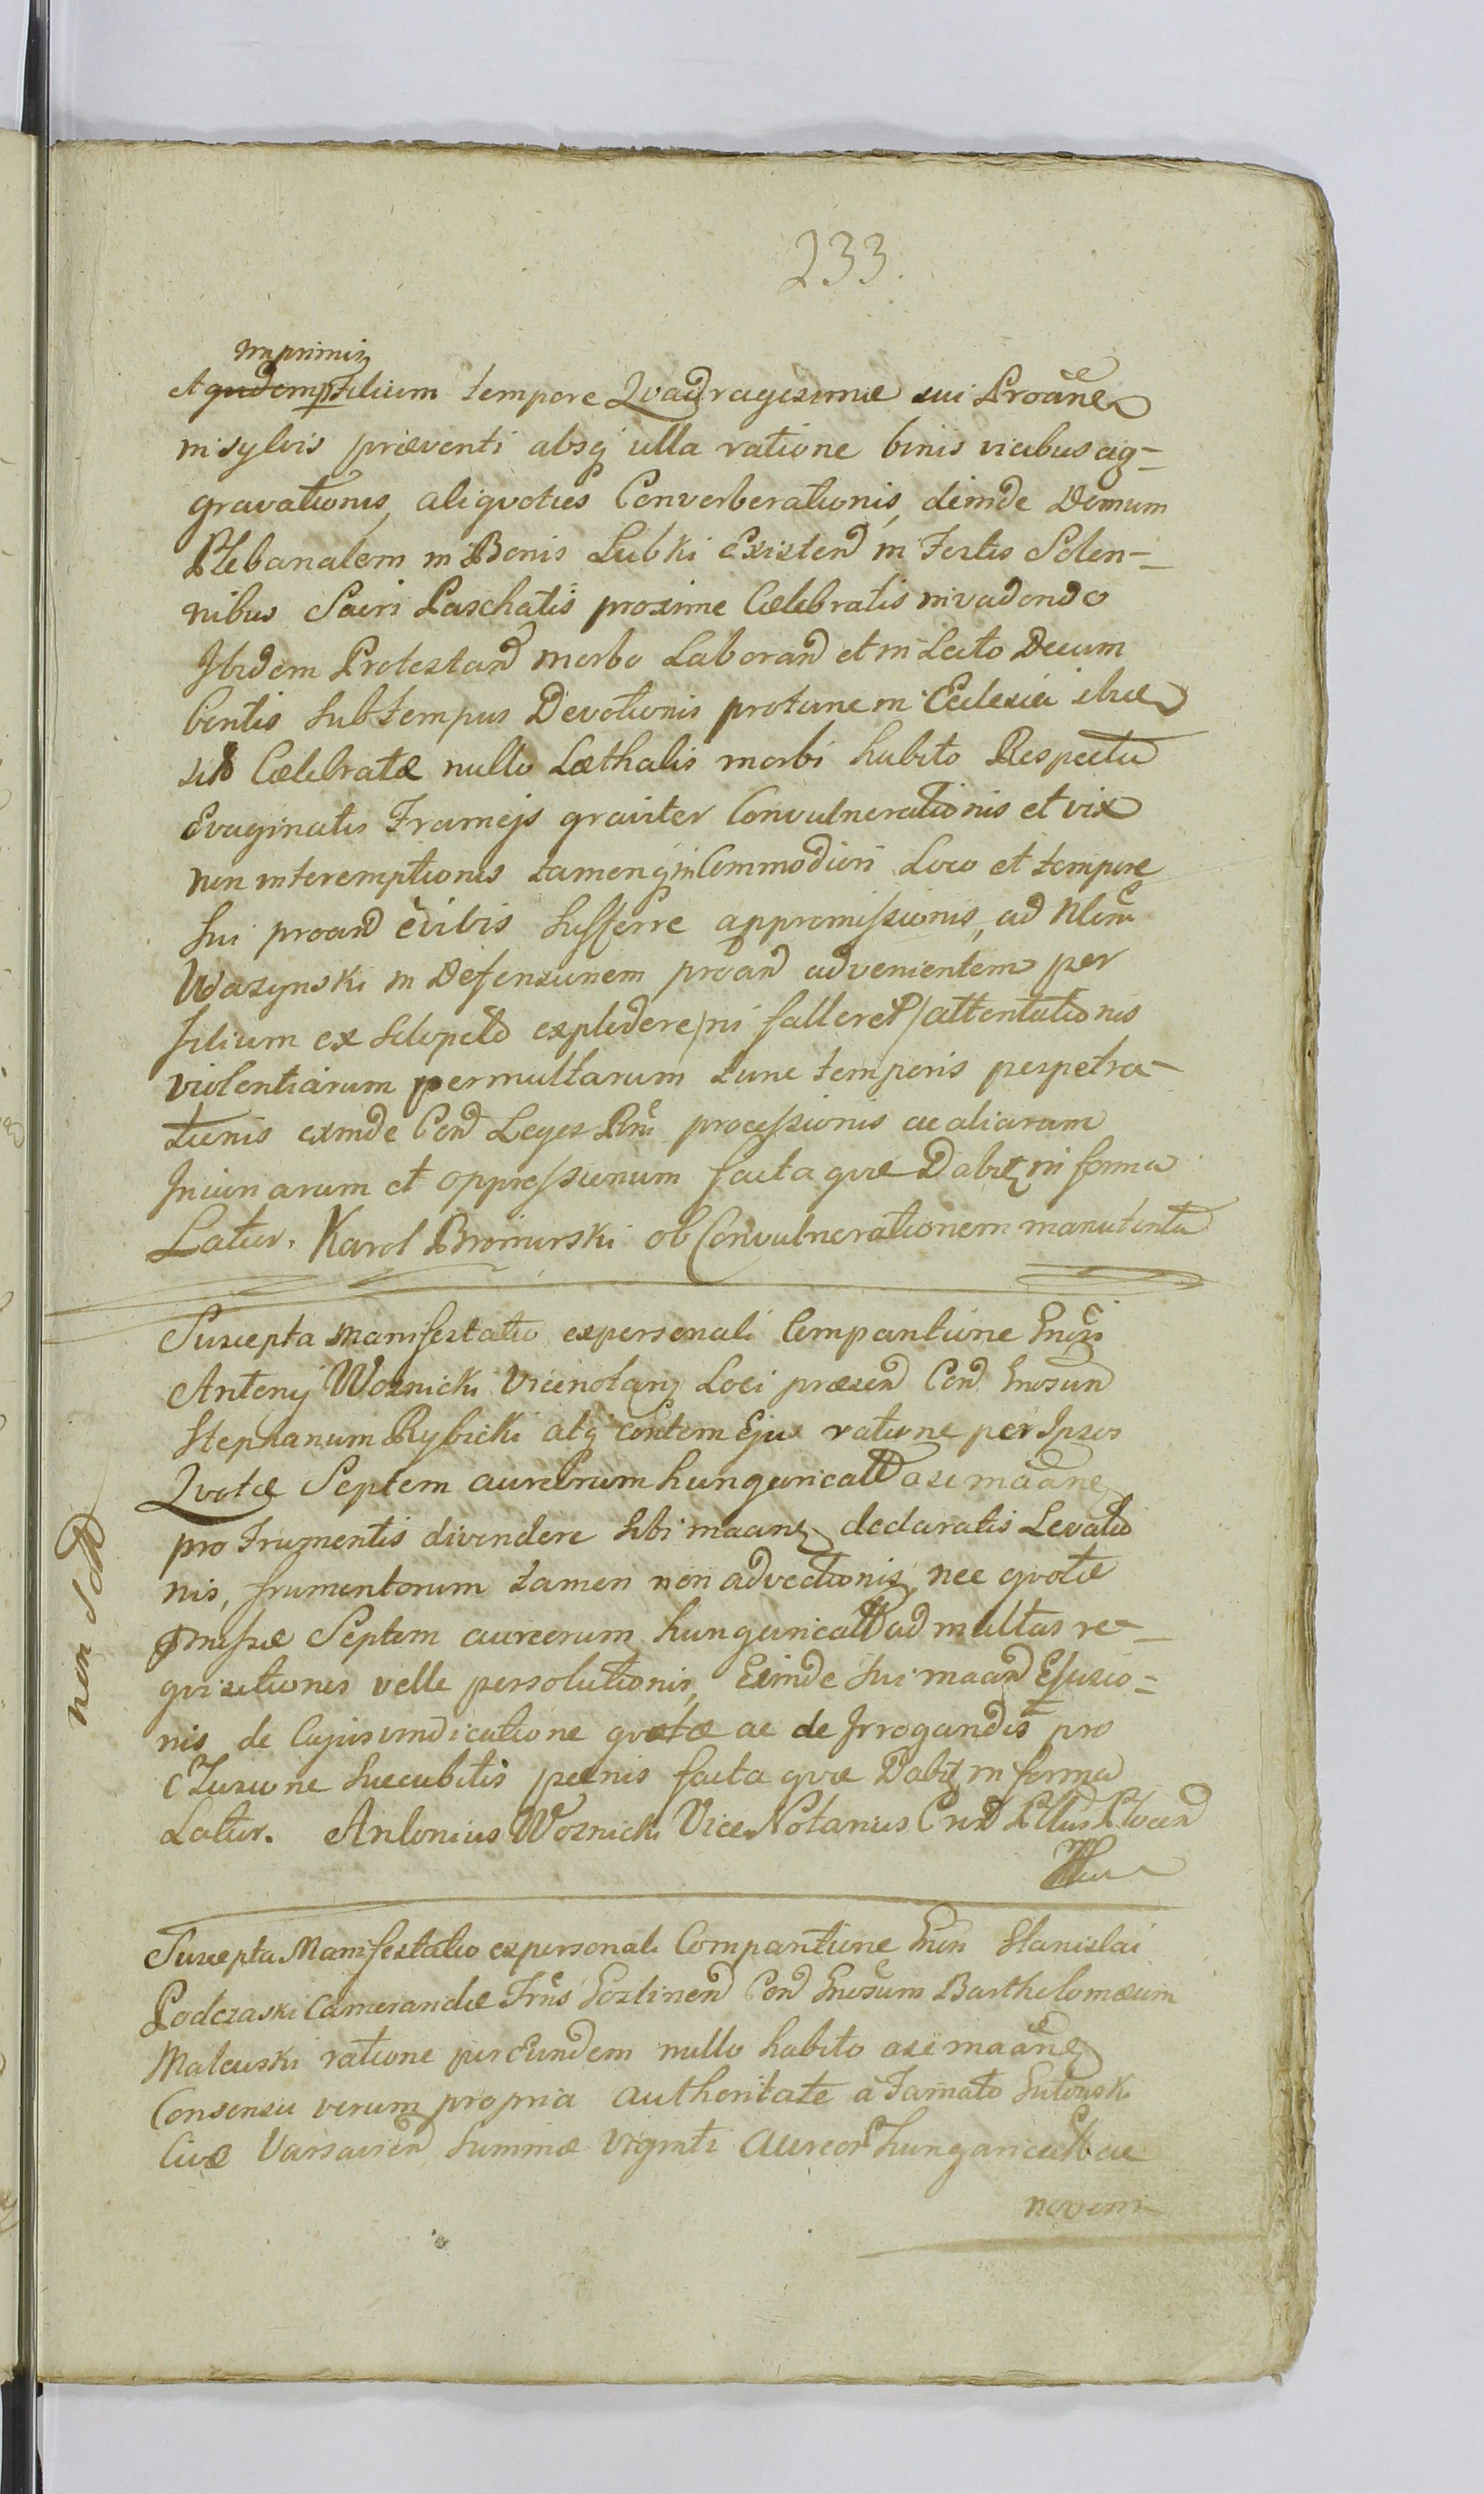 233.
imprimis
et quidem p filium tempore Qvadragesimæ sui Proane
in sylvis præventi absq ulla ratione binis vicibus ag-
gravationis, aliqvoties Converberationis, deinde Domum
Plebanalem in Bonis Lubki Existend in Festis Solen-
nibus Sacri Paschatis proxime Cælebratis invadendo
Ibidem Protestand morbo Laborand et in Lecto Decum
bentis sub tempus Devotionis protunc in Ecclesia ibid
Cælebratæ nullo Læthalis morbi habito Respectu
Evaginatis Framejs graviter Convulnerationis et vix
non interemptionis tamenq in Commodiori Loco et tempore
sui proand sufferre appromissionis, ad
Wazynski in Defensionem proand advenientem per
filium ex sclopeto explodere /ni falleret/ attentationis
violentiarum permultarum tunc temporis perpetra-
tionis exinde Cond Leges Rni processionis ac aliarum
Iniuriarum et oppressionum facta qvæ Dabit in forma
Latur. Karol ob Convulnerationem manutenta
Suscepta Manifestatio ex personali Comparitione Gnosi
Antonij Woznicki Vicenotarij Loci præsend Cond Gnosum
Stephanum Rybicki atq Contem Ejus ratione per Ipsos
Qvotæ Septem aureorum hungaricall a se maane
pro Frumentis divendere sibi maane declaratis Levatio
nis, frumentorum tamen non advectionis, nec qvotæ
præmissæ Septem aureorum hungaricall ad multas re-
qvisitiones velle persolutionis, Exinde sui maand Elusio-
nis de Cujus vindicatione qvotæ ac de Irrogandis pro
Elusione succubitis pœnis facta qvæ Dabit in forma
Latur. Antonius Woznicki Vice Notarius Cnd Pllus Plocen
non soltt
Suscepta Manifestatio ex personali Comparitione Gnosi Stanislai
Podczaski Camerandæ Trris Gostinend Cond Gnosum Bartholomæum
Maleuski ratione per Eundem nullo habito a se maane
Consensu verum propria authoritate a Famato
Cive Varsavien Summæ Viginti Aureor hungaricall ac
novem